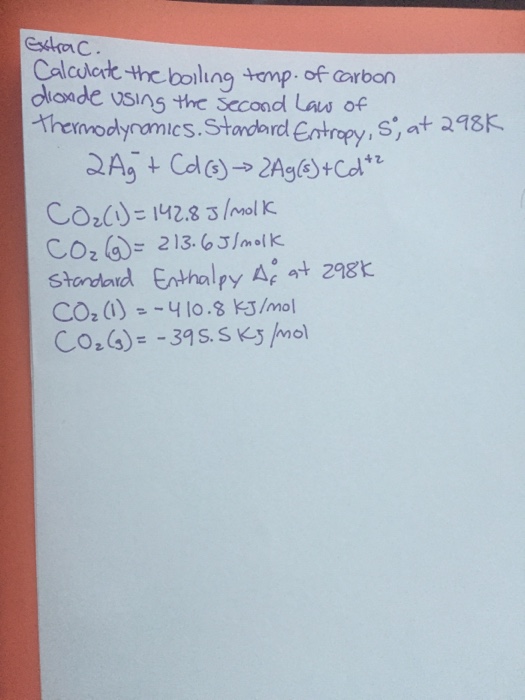 Extra C.
Calculate the boiling temp. of carbon
dioxide using the second Law of
Thermodynamics. Standard Entropy, S°, at 298K
2Ag⁻ + Cd(s) → 2Ag(s) + Cd⁺²
CO₂(l) = 142.8 J/mol K
CO₂(g) = 213.6 J/mol K
Standard Enthalpy Δf° at 298K
CO₂(l) = -410.8 KJ/mol
CO₂(g) = -395.5 KJ/mol